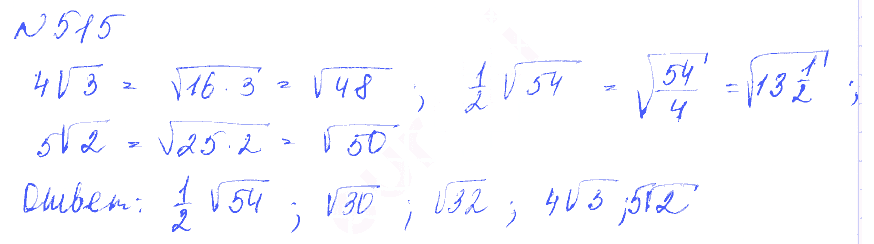 № 515
4√3 = √16·3 = √48 ; 1/2 √54 = √54/4 = √13 1/2 ;
5√2 = √25·2 = √50
Ответ: 1/2 √54 ; √30 ; √32 ; 4√3 ; 5√2